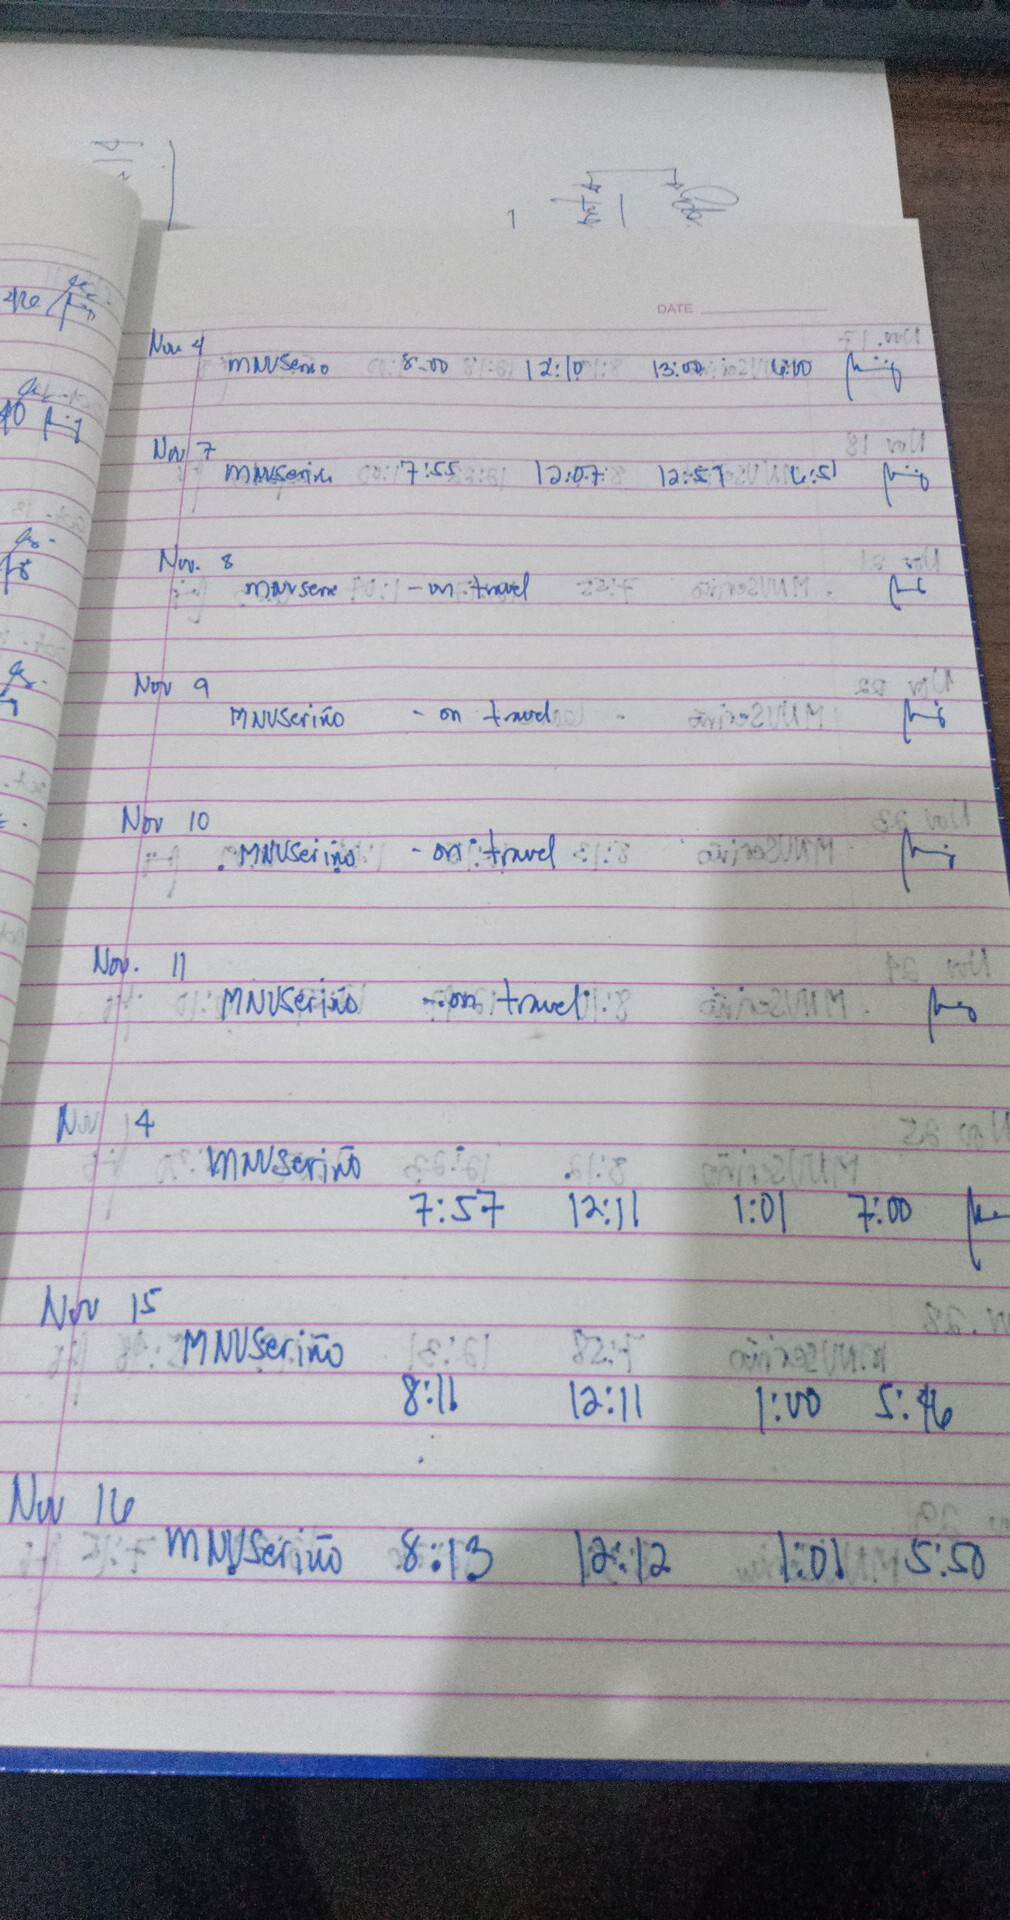 DATE
Nov 4
MNVSeriño 8:00 12:10 13:00 6:00
Nov 7
MNVSeriño 7:55 12:07 12:57 6:51
Nov. 8
MNVSeriño - on travel
Nov 9
MNVSeriño - on travel
Nov 10
MNVSeriño - on travel
Nov. 11
MNVSeriño - on travel
Nov 14
MNVSeriño
7:57 12:11 1:01 7:00
Nov 15
MNVSeriño
8:11 12:11 1:00 5:46
Nov 16
MNVSeriño 8:13 12:12 1:01 5:50